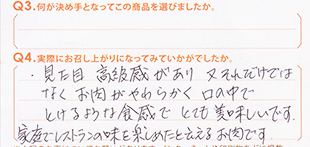 Q3.何が決め手となってこの商品を選びましたか。
Q4.実際にお召し上がりになってみていかがでしたか。
・見た目 高級感があり 又それだけでは
なく お肉がやわらかく 口の中で
とけるような食感で とても美味しいです。
家庭でレストランの味を楽しめたと言えるお肉です。